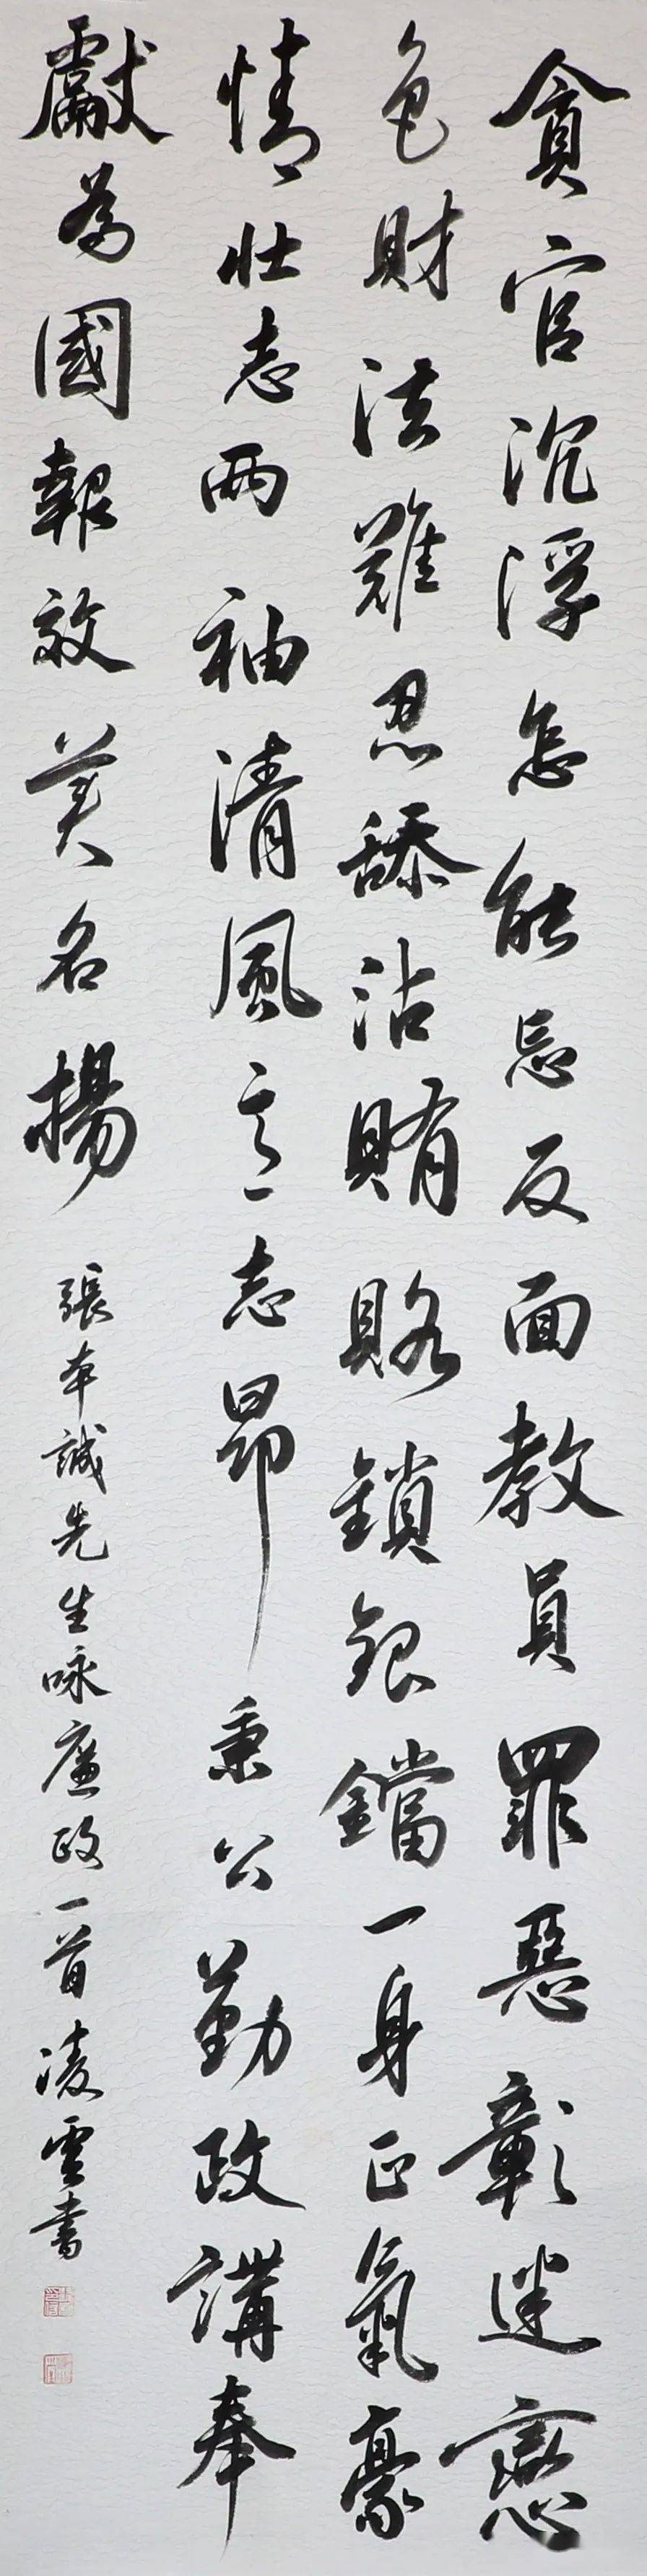 貪官沉浮怎能忘反面教員罪惡彰迷戀
色財法難忍舔沾賄賂鎖銀鐺一身正氣豪
情壯志兩袖清風意志昂秉公勤政講奉
獻為國報效美名揚
張本誠先生咏廉政一首凌雲書